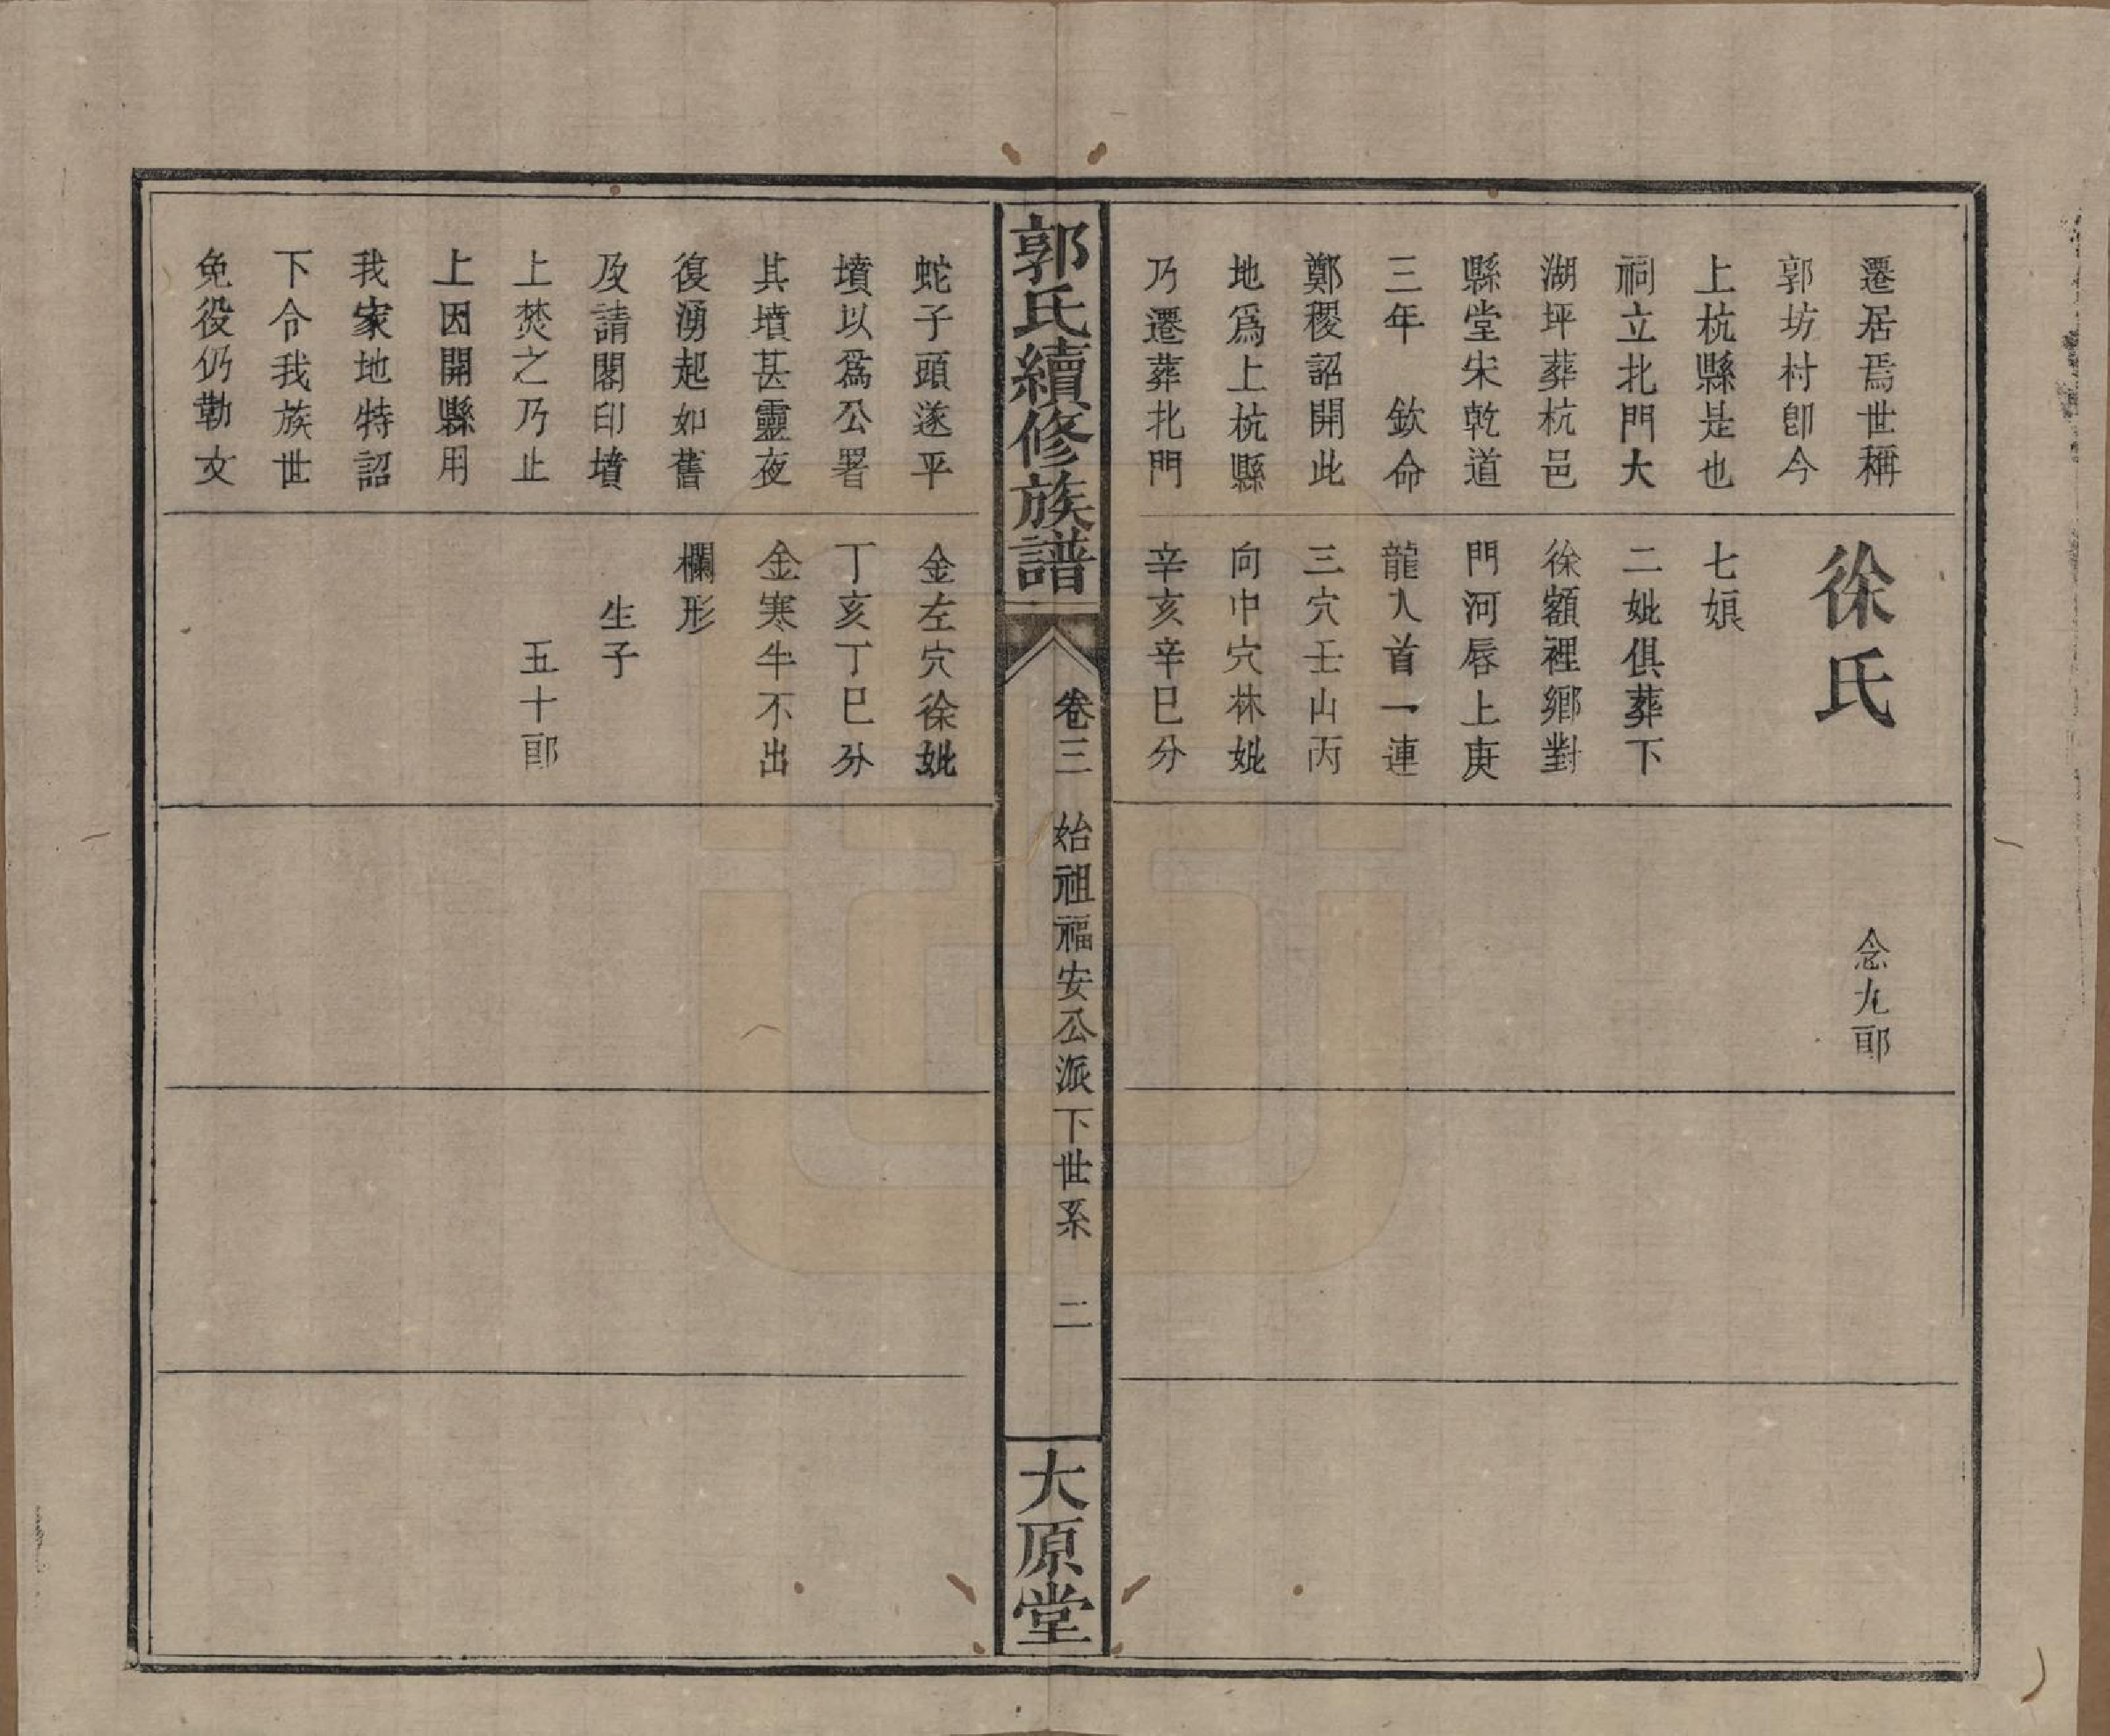 遷居焉世稱
郭坊村卽今
上杭縣是也
祠立北門大
湖坪葬杭邑
縣堂宋乾道
三年　欽命
鄭稷詔開此
地爲上杭縣
乃遷葬北門
徐氏
七娘
二妣俱葬下
徐額裡鄉對
門河唇上庚
龍入首一連
三穴壬山丙
向中穴林妣
辛亥辛巳分
念九郎
郭氏續修族譜
卷三　始祖福安公派下世系　二
大原堂
蛇子頭遂平
墳以爲公署
其墳甚靈夜
復湧起如舊
及請閣印墳
上焚之乃止
上因開縣用
我家地特詔
下令我族世
免役仍勒文
金左穴徐妣
丁亥丁巳分
金寒牛不出
欄形
生子
五十郎